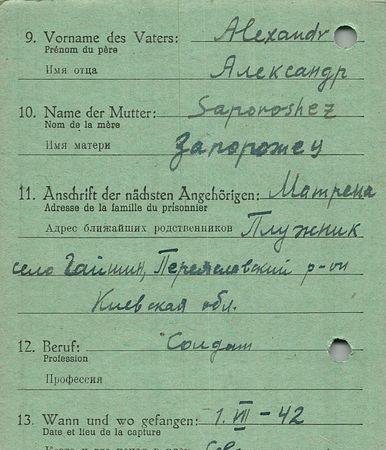 9. Vorname des Vaters: Alexandr
Prénom du père
Имя отца Александр
10. Name der Mutter: Saporoshez
Nom de la mère
Имя матери Запорожец
11. Anschrift der nächsten Angehörigen: Матрена
Adresse de la famille du prisonnier
Адрес ближайших родственников Плужник
село Гайшин, Переяславский р-он
Киевская обл.
12. Beruf: Солдат
Profession
Профессия
13. Wann und wo gefangen: 1. VII - 42
Date et lieu de la capture